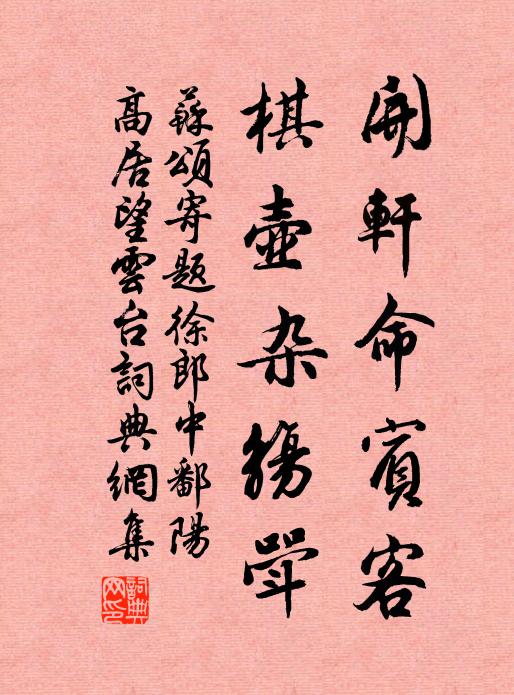 開軒命賓客
棋壺杂觴斝
蘇頌寄题徐郎中鄱陽
高居望雲台詞典網集
詞典网印